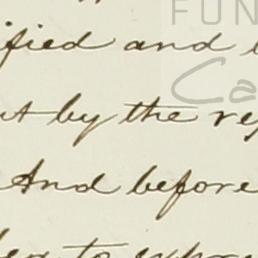 FUN
ified and
Ca
t by the re
And before
to